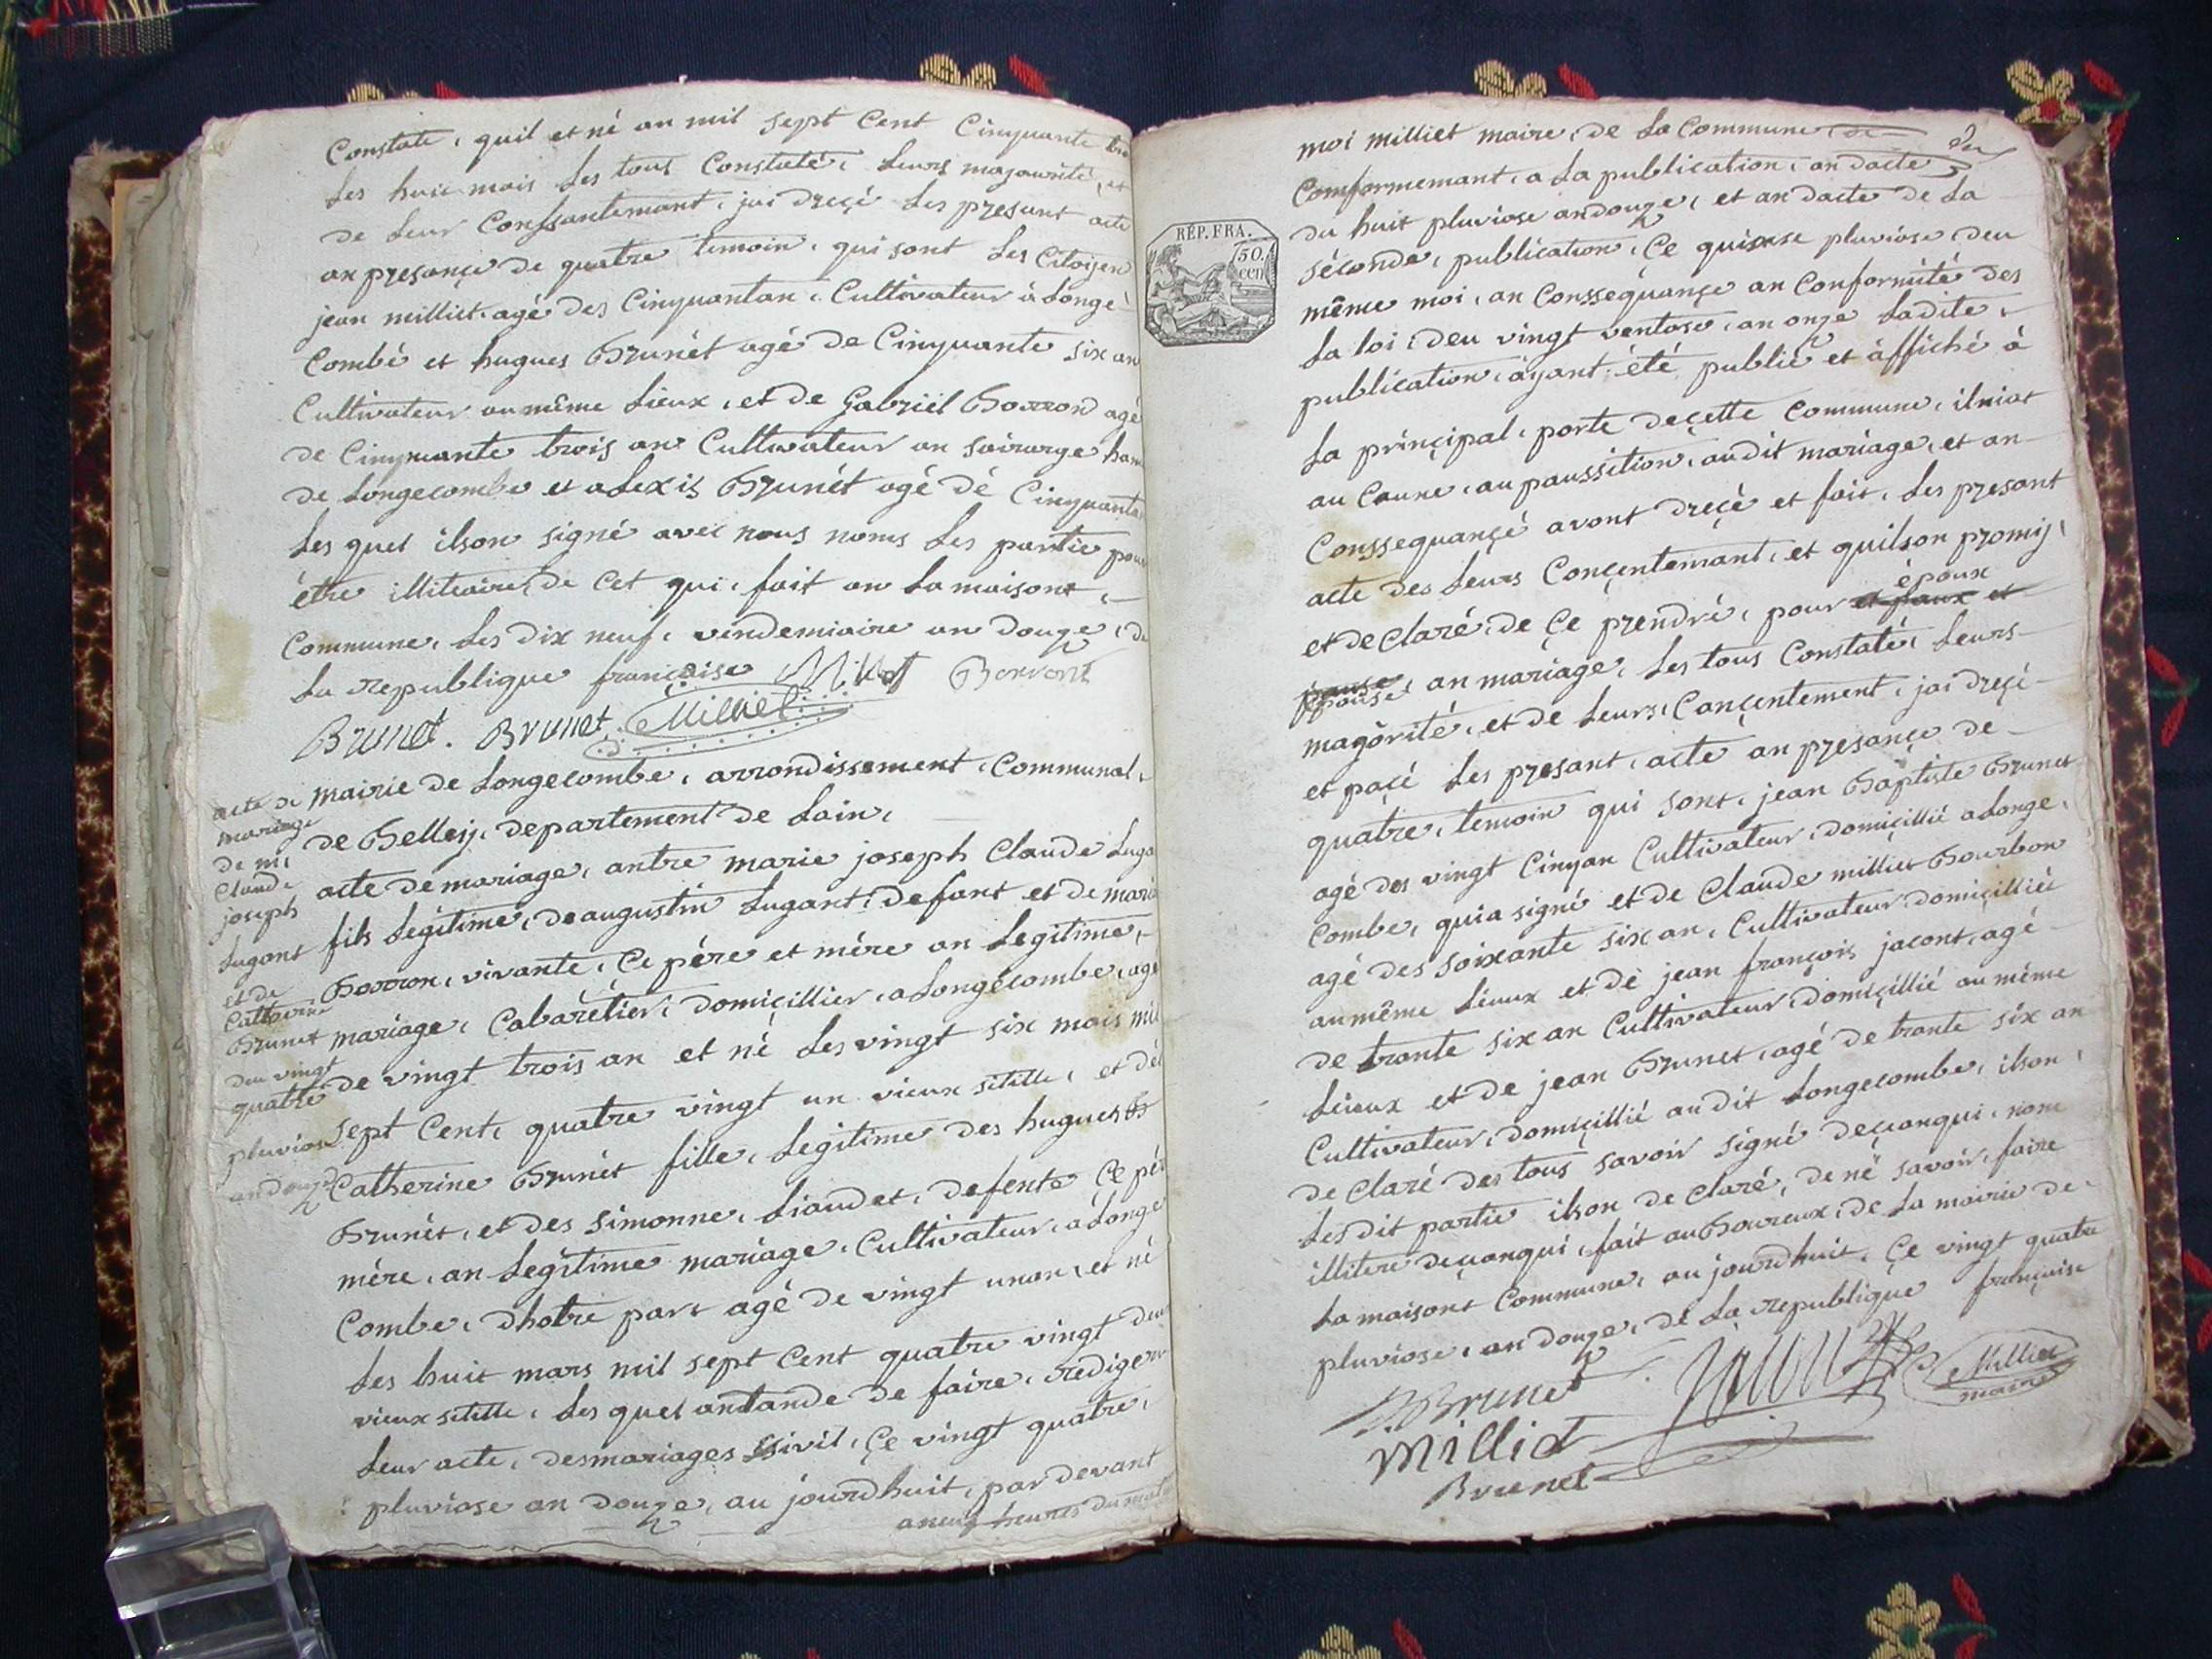 Constate, quil et né an mil sept Cent Cinquante
Les huit mais Les tous Constaté, Leurs majourité, et
de Leur Conssantemant, jai dreçé Les presant acte
an presançe de quatre temoin, qui sont Les Citoijen
jean milliet agé des Cinquantan, Cultivateur à Longe
Combé et hugues Brunét agé de Cinquante six an
Cultivateur au même Lieux, et de Gabriel Borron agé
de Cinquante trois an Cultivateur an
de Longecombe et alexis Brunét agé dé Cinquante
Les quel ilson signé avec nous noms Les partie pour
étre illiteaire, de Cet qui, fait an La maisont,
Commune, Les dix neuf, vendemiaire an douze, de
La republique françaisse Milliet Borront
Brunet. Brunet Milliet
acte de
mariage
de m.
Claude
joseph
Lugant
et de
Catherine
Brunet
deu vingt
quatre
pluviose
an douze
mairie de Longecombe, arrondissement, Communal,
de Belleij, departement de Lain,
acte de mariage, antre marie joseph Claude Luga
fils Legitime, de augustin Lugant, defant et de marie
Borron, vivante, Ce pére et mére an Legitime,
mariage, Cabarétier, domiçillier, a Longécombe, agé
de vingt trois an et né Les vingt six mais mil
sept Cent, quatre vingt un vieux stille, et dé
Catherine Brunét fille, Legitime des hugues B
Brunét, et des simonne, Liaudet, defente Ce pér
mére, an Legitime mariage, Cultivateur, a Longe
Combe, dhotre part agé de vingt unan, et né
Les huit mars mil sept Cent quatre vingt deu
vieux stille, Les quel antande de faire, rediger
Leur acte, desmariages ssivil, Çe vingt quatre,
pluviose an douze, au jourdhuit, par devant
a neuf heures du matin
moi milliet maire, de La Commune de
Comformemant, a La publication, an dacte deu
du huit pluviose andouze, et an dacte de La
séconde, publication, Çe quinse pluviose deu
même moi, an Conssequançe an Conformité des
La loi, deu vingt ventose, an onze Ladite,
publication, ayant été publié et àffiché à
La prinçipal, porte deçette Commune, ilniat
au Caune, au paussition, audit mariage, et an
Conssequançé avont dreçé et fait, Les presant
acte des Leurs Conçentemant, et quilson promij,
époux
et de Claré, de Çe prendré, pour et
épouse, an mariage, Les tous Constaté, Leurs
magôrité, et de Leurs, Conçentement, jai dreçé
et paçé Les presant, acte an presançe de
quatre, temoin qui sont, jean Baptiste Brunet
agé des vingt Cinqan Cultivateur, domiçillié a Longe,
Combe, qui a signé et de Claude milliet Bourbon
agé des soixante six an, Cultivateur domiçillié
au même Lieux et dé jean françois jacont, agé
de trante six an Cultivateur, domiçillié au même
Lieux et de jean Brunet, agé de trante six an
Cultivateur, domiçillié audit Longecombe, ilson,
de Claré des tous savoir signé deçanqui, nom
Les dit partie ilson de Claré, de né savoir, faire
illitere deçanqui, fait au Boureux, de La mairie de
La maisont Commune, au jourdhuit, Çe vingt quatre
pluviose, an douze, de La republique française
JB Brunet Jacont Milliet
maire
Milliet
Brunet
RÉP. FRA.
50.
cen